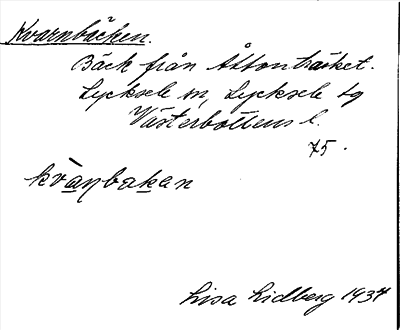 Kvarnbäcken.
Bäck från Åttonträsket.
Lycksele sn, Lycksele tg
Västerbottens l.
75.
kvàṇbakan
Lisa Lidberg 1937